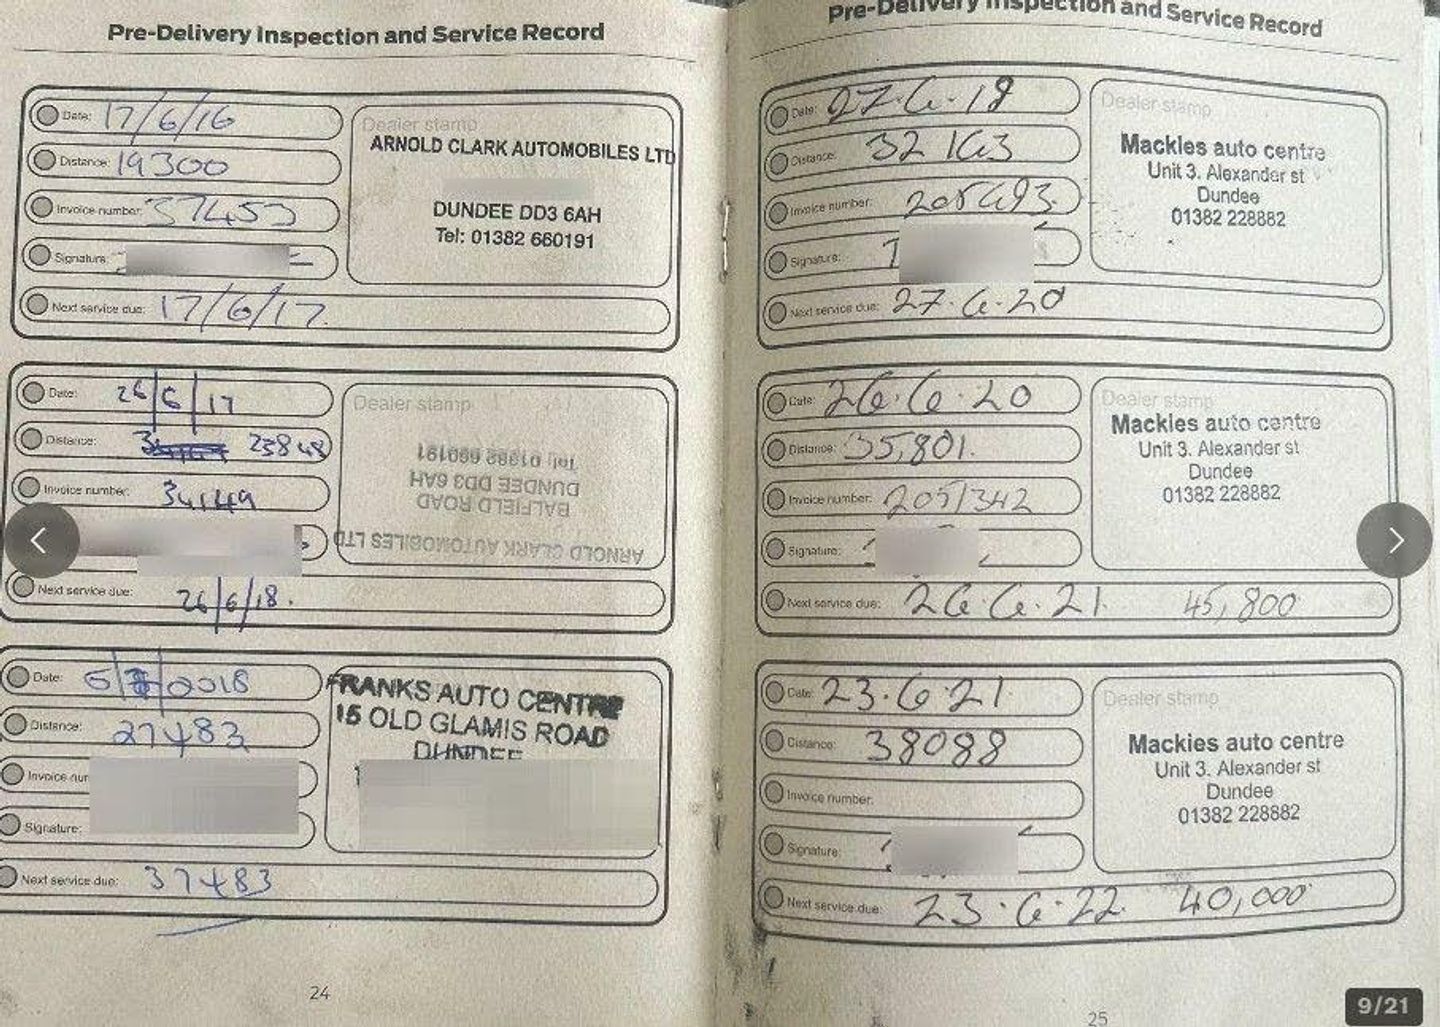 Pre-Delivery Inspection and Service Record
Date: 17/6/16
Distance: 19300
Invoice number: 37453
Signature:
Next service due: 17/6/17.
Dealer stamp
ARNOLD CLARK AUTOMOBILES LTD
DUNDEE DD3 6AH
Tel: 01382 660191
Date: 26/6/17
Distance: 23848
Invoice number: 34149
Next service due: 26/6/18.
Dealer stamp
ARNOLD CLARK AUTOMOBILES LTD
BALFIELD ROAD
DUNDEE DD3 6AH
Tel: 01382 660191
Date: 2018
Distance: 27483
Invoice
Signature:
Next service due: 37483
FRANKS AUTO CENTRE
15 OLD GLAMIS ROAD
DUNDEE
24
Pre-Delivery Inspection and Service Record
Date: 27.6.19
Distance: 32163
Invoice number: 205493
Signature:
Next service due: 27.6.20
Dealer stamp
Mackies auto centre
Unit 3. Alexander st
Dundee
01382 228882
Date: 26.6.20
Distance: 35,801.
Invoice number: 2051342
Signature:
Next service due: 26.6.21. 45,800
Dealer stamp
Mackies auto centre
Unit 3. Alexander st
Dundee
01382 228882
Date: 23.6.21
Distance: 38088
Invoice number:
Signature:
Next service due: 23.6.22. 40,000
Dealer stamp
Mackies auto centre
Unit 3. Alexander st
Dundee
01382 228882
25
9/21